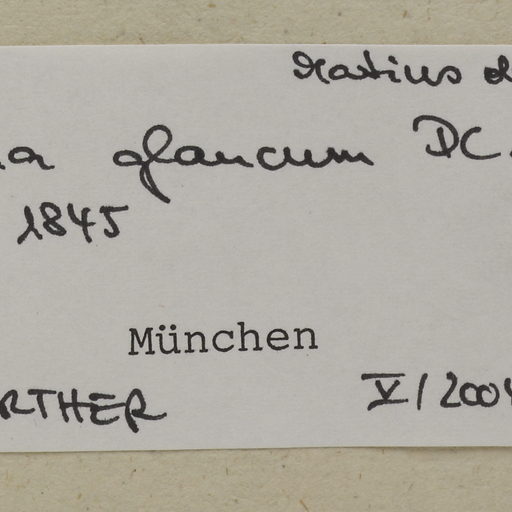 Martius d
a glaucum DC.
1845
München
RTHER
V/2004